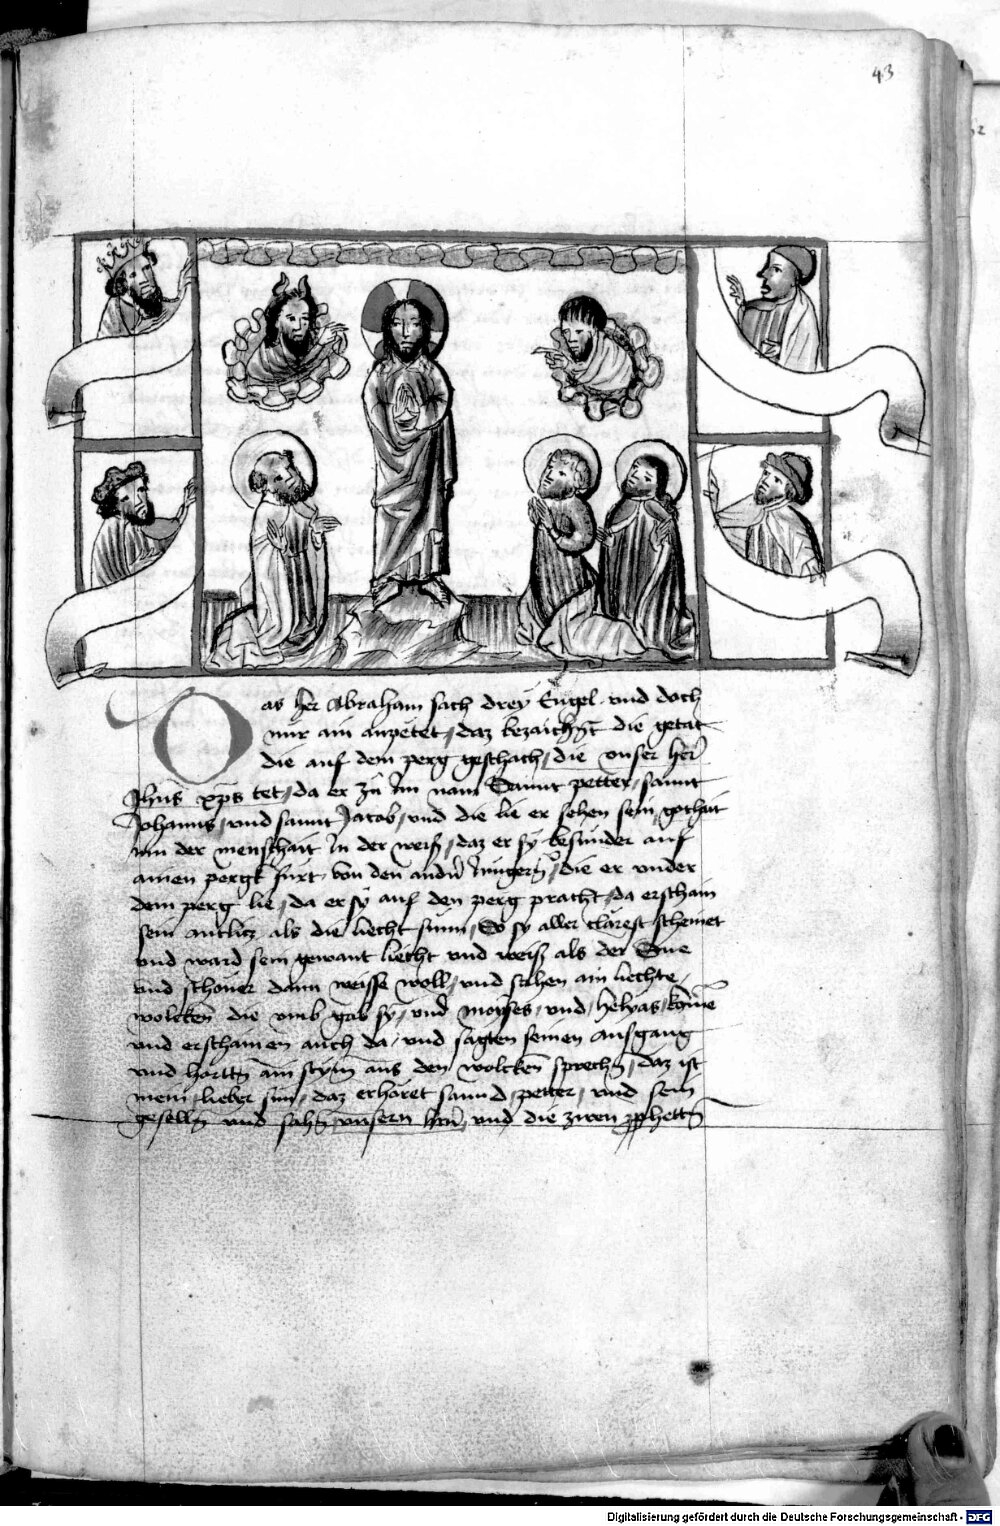 43
Das her Abraham sach drey Engel und doch
nur ain anpetet / daz bezaichn̄t die getat
die auf dem perg geschach / die unser her̄
Jhūs xp̄s tet / da er zū Im nam Sannt petter / sannt
Johanns / und sannt Jacob / und die lie er sehen sein gothait
inn der menschait In der weiß / daz er sÿ besunder auf
ainen pergk furt von den andn̄ Jungern̄ / die er under
dem perg lie / da er sÿ auf den perg pracht / da erschain
sein antlicz als die liecht sunn / So sy aller clarest scheinet
und ward sein gewant liecht und weiß als der Sne
und schoner dann weisse woll / und sahen ain liechte
wolcken die umb gab sy / und moyses / und / helyas / kome
und erschainen auch da / und sagten seinen ausgang
und hortn̄ ain stym aus den wolcken sprechn̄ / daz ist
mein / lieber sun / daz erhoret sannd / petter / und sein
geselln̄ und sahn̄ unsern hern̄ / und die zwen pphettn̄
Digitalisierung gefördert durch die Deutsche Forschungsgemeinschaft - DFG